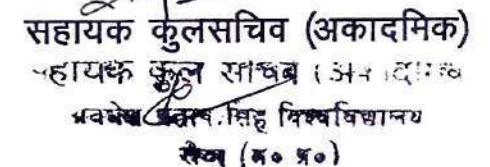 सहायक कुलसचिव (अकादमिक)
सहायक कुल सचिव (अकादमिक
प्रताप सिंह विश्वविद्यालय
रीवा (म० प्र०)